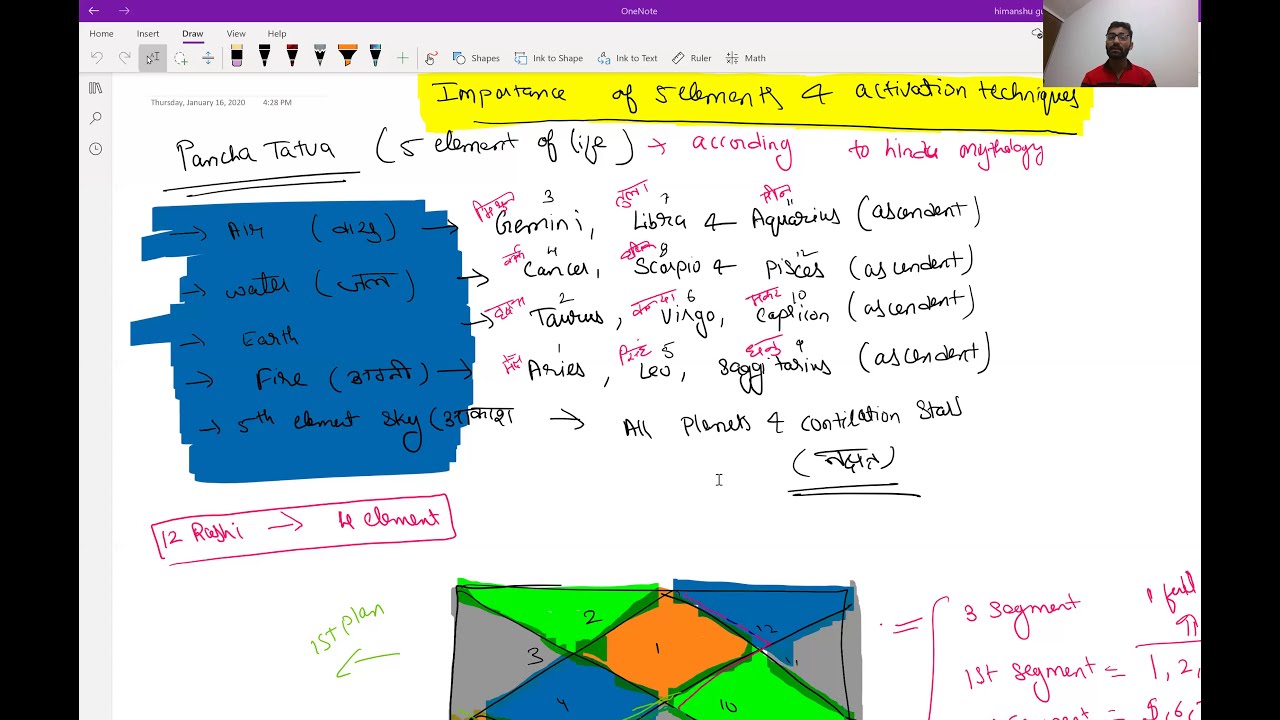 OneNote
himanshu gu
Home Insert Draw View Help
Shapes Ink to Shape Ink to Text Ruler Math
Thursday, January 16, 2020 4:28 PM
Importance of 5 elements & activation techniques
Pancha Tatva (5 element of life) → according to hindu mythology
मिथुन 3 तुला 7 11
→ Air (वायु) → Gemini, Libra & Aquarius (ascendent)
कर्क 4 8 12
→ water (जल) → Cancer, Scorpio & Pisces (ascendent)
2 कन्या 6 मकर 10
→ Earth → Taurus, Virgo, Capricon (ascendent)
मेष 1 सिंह 5 धनु 9
→ Fire (अग्नी) → Aries, Leo, Saggitarius (ascendent)
→ 5th element Sky (आकाश → All Planets & contilation Stars
(नक्षत्र)
12 Rashi → 4 element
1st plan
2 12
3 1 11
4 10
3 segment
1st segment = 1, 2,